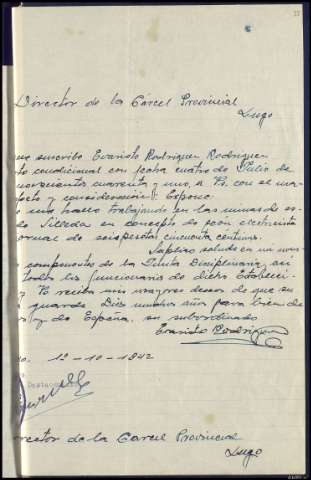 Director de la Cárcel Provincial
Lugo
suscribe Evaristo Rodriguez Rodriguez
condicional con fecha cuatro de Julio de
novecientos cuarenta y uno, a Vd. con el ma-
respeto y consideración Expone
me hallo trabajando en las minas es-
de Silleda en concepto de peón electricista
jornal de seis pesetas cincuenta centimos.
Suplico salude en mi nom-
componentes de la Junta Disciplinaria, así
todos los funcionarios de dicho Estableci-
y Vd. reciba mis mayores deseos de que su
guarde Dios muchos años para bien de
y de España. su subordinado
Evaristo Rodriguez
12-10-1942
Destacamento
Director de la Carcel Provincial
Lugo